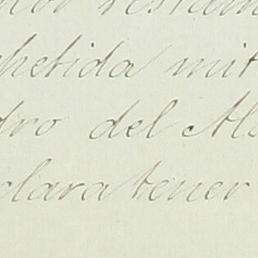 petida mit
dro del Al
clara tener